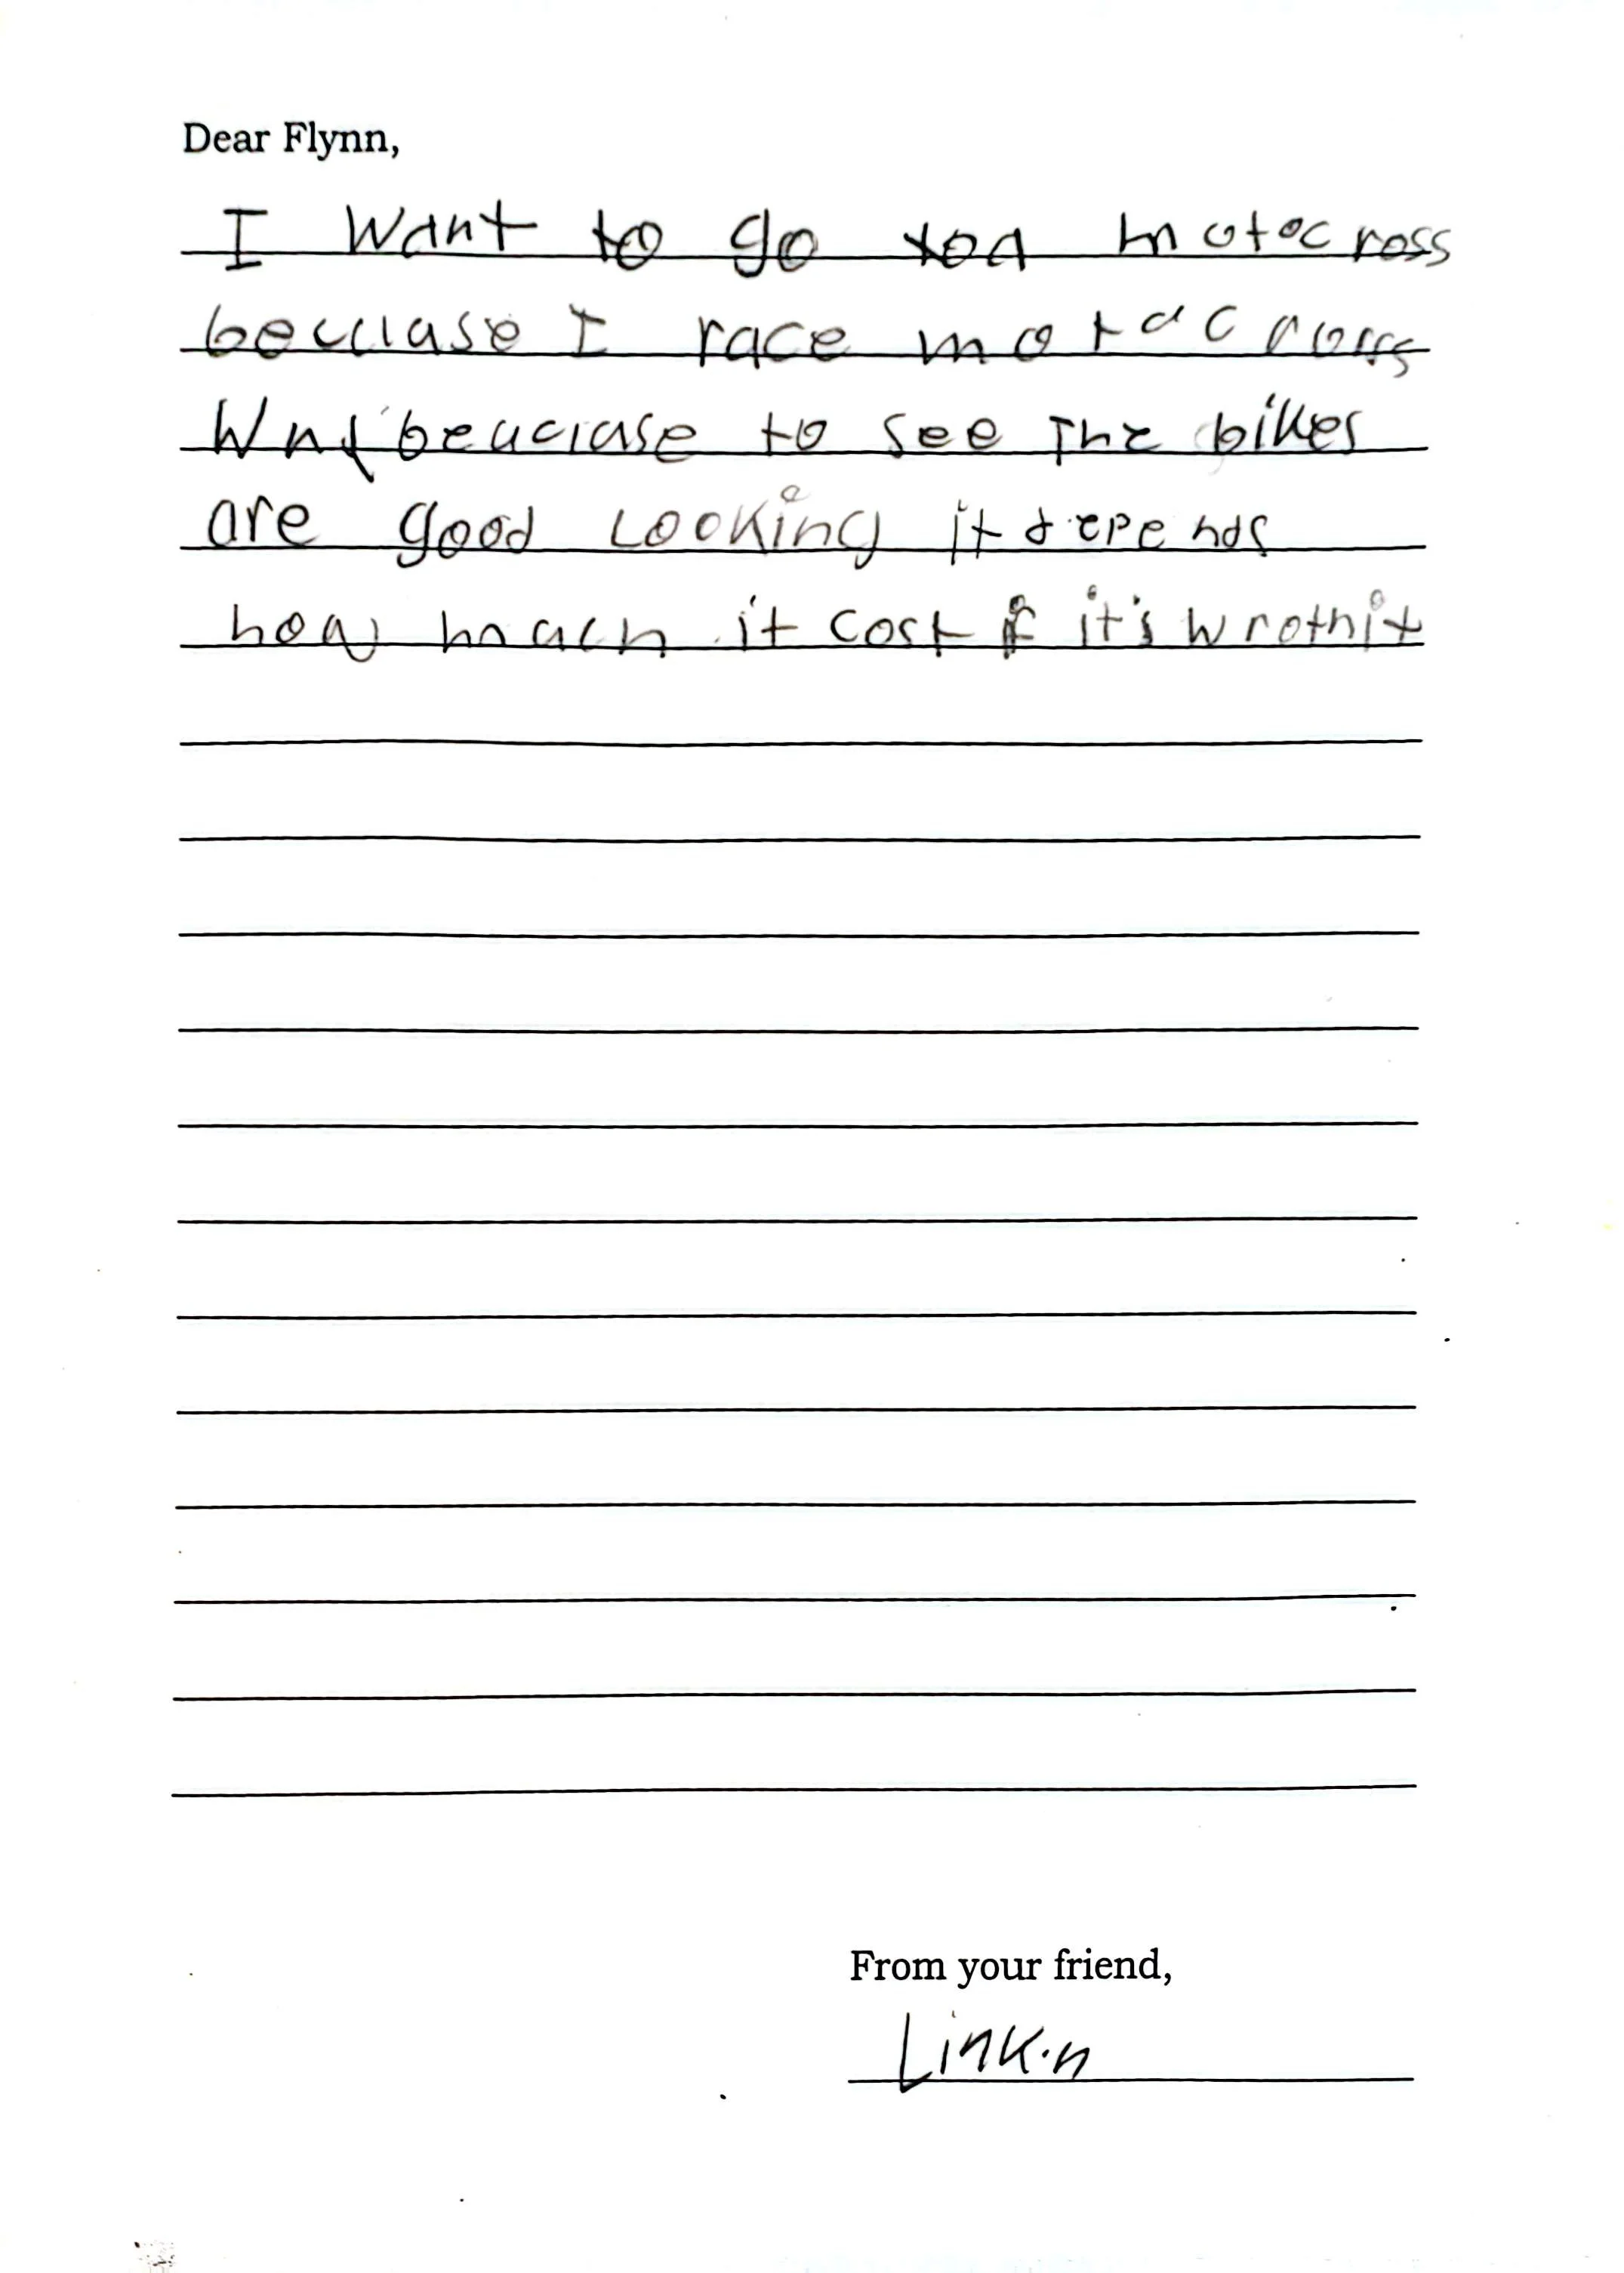 Dear Flynn,
I want to go to a motocross
becuase I race motocross
beuciase to see the bikes
are good Looking it depends
how much it cost if it's wrothit
From your friend,
Link.n